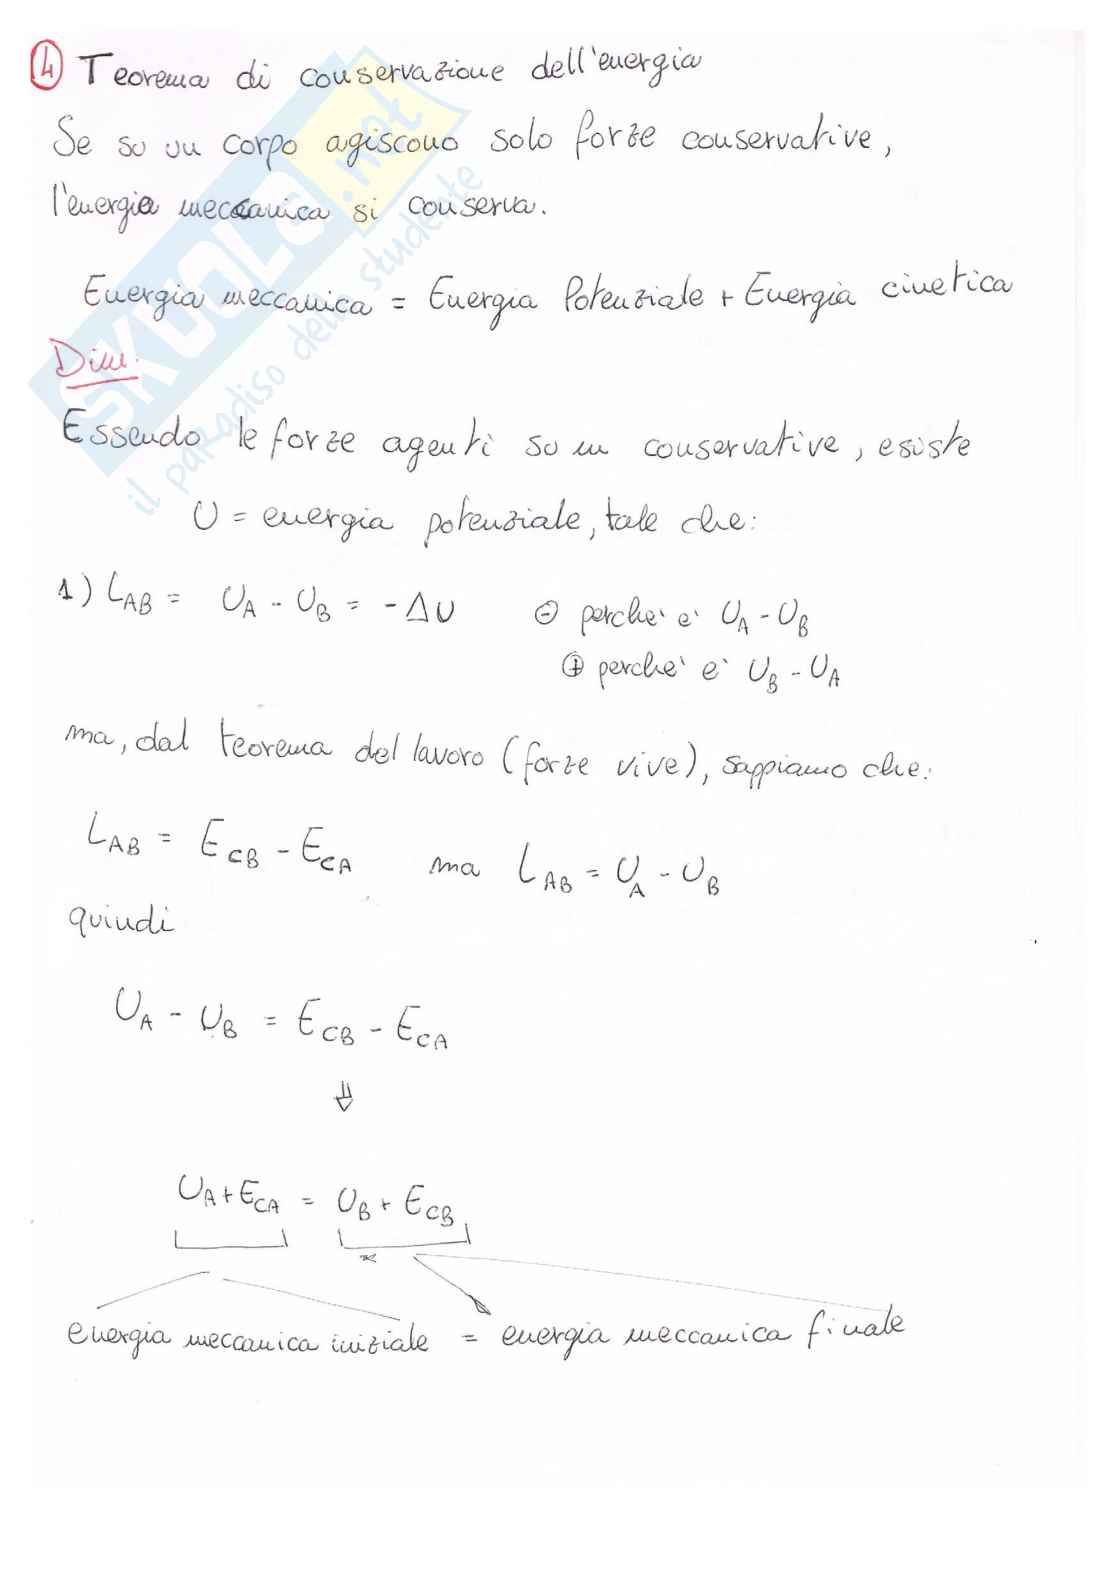 4 Teorema di conservazione dell'energia
Se su un corpo agiscono solo forze conservative,
l'energia meccanica si conserva.
Energia meccanica = Energia Potenziale + Energia cinetica
Dim.
Essendo le forze agenti su m conservative, esiste
U = energia potenziale, tale che:
1) L_AB = U_A - U_B = -ΔU ⊖ perche' e' U_A - U_B
⊕ perche' e' U_B - U_A
ma, dal teorema del lavoro (forze vive), sappiamo che:
L_AB = E_CB - E_CA ma L_AB = U_A - U_B
quindi
U_A - U_B = E_CB - E_CA
⇓
U_A + E_CA = U_B + E_CB
energia meccanica iniziale = energia meccanica finale
SKUOLA.net
il paradiso dello studente